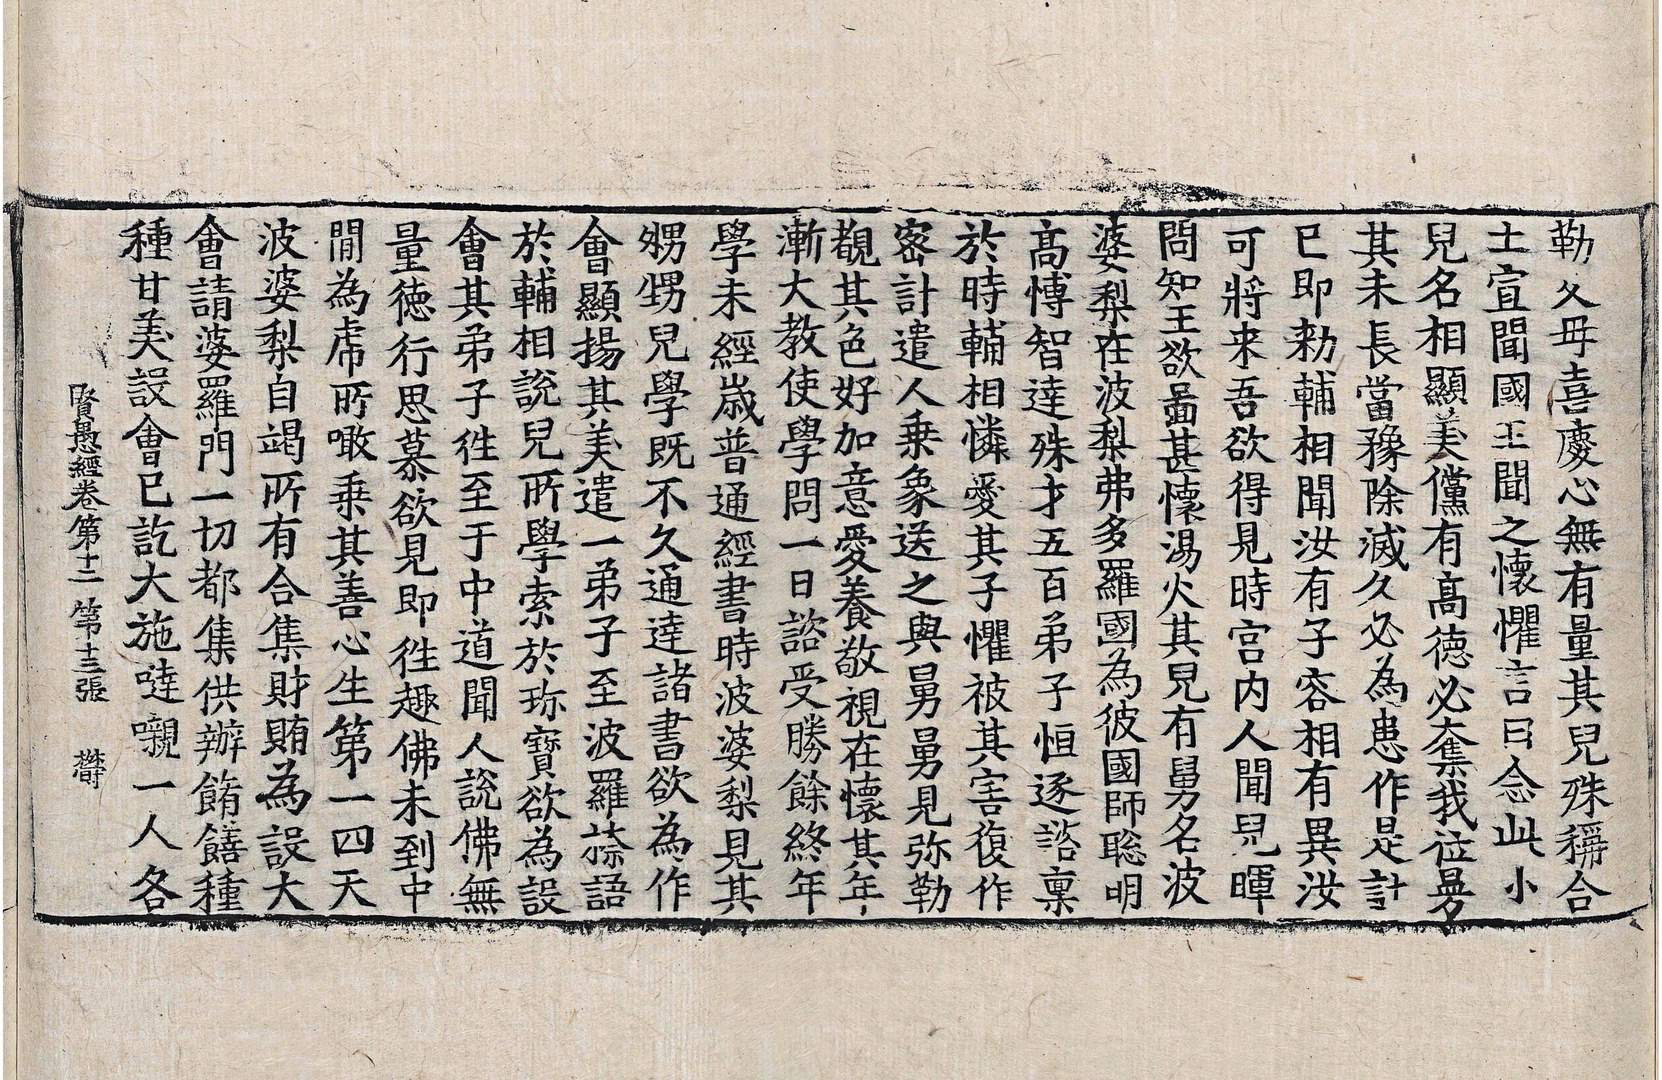 勒父母喜慶心無有量其兒殊稱合
土宣聞國王聞之懷懼言曰念此小
兒名相顯美儻有高德必奪我位曼
其未長當豫除滅久必為患作是計
已即勑輔相聞汝有子容相有異汝
可將来吾欲得見時宮内人聞兒暉
問知王欲啚甚懷湯火其兒有舅名波
婆梨在波梨弗多羅國為彼國師聡明
高博智達殊才五百弟子恒逐諮稟
於時輔相憐愛其子懼被其害復作
密計遣人乗象送之與舅舅見弥勒
覩其色好加意愛養敬視在懷其年
漸大教使學問一日諮受勝餘終年
學未經歲普通經書時波婆梨見其
甥兒學既不久通達諸書欲為作
會顯揚其美遣一弟子至波羅㮈語
於輔相說兒所學索於珎寶欲為設
會其弟子徃至于中道聞人説佛無
量德行思慕欲見即徃趣佛未到中
間為虎所噉乗其善心生第一四天
波婆梨自竭所有合集財賄為設大
會請婆羅門一切都集供辦餚饍種
種甘美設會已訖大施噠嚫一人各
賢愚經卷第十二 第十三張 欎